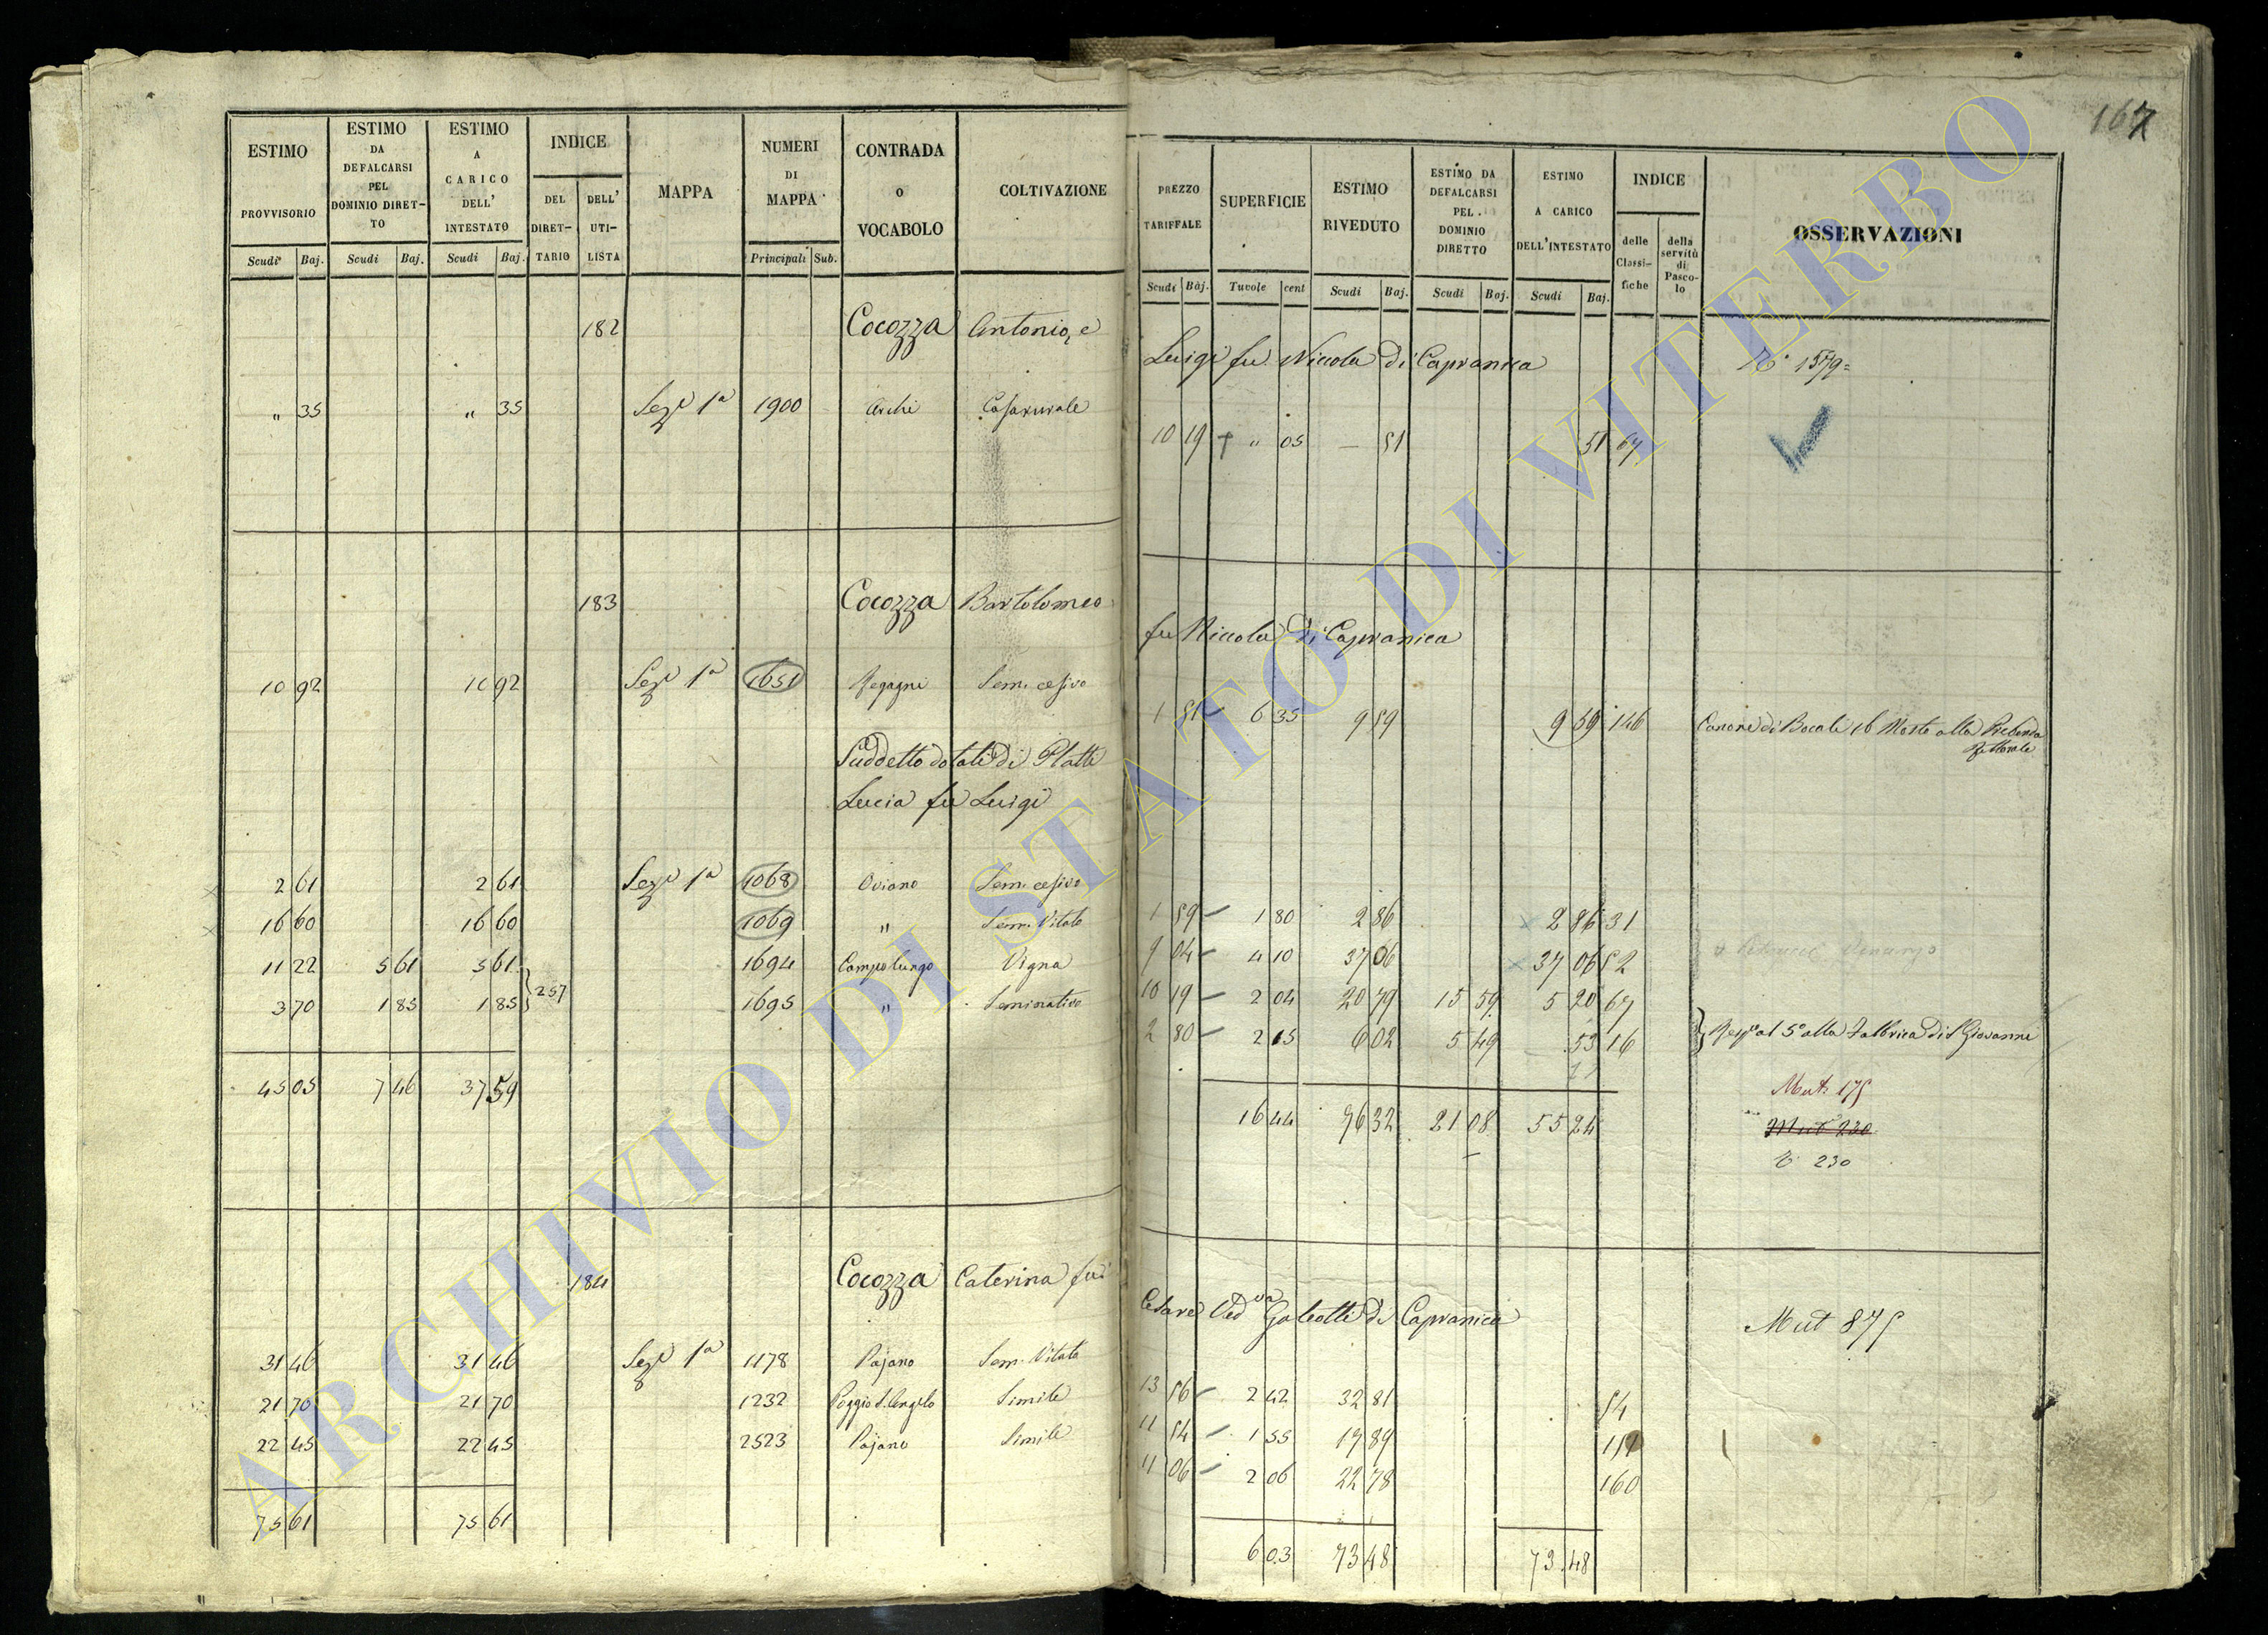 167
ESTIMO PROVVISORIO
ESTIMO DA DEFALCARSI PEL DOMINIO DIRETTO
ESTIMO A CARICO DELL' INTESTATO
INDICE
DEL DIRETTARIO
DELL' UTILISTA
MAPPA
NUMERI DI MAPPA
CONTRADA o VOCABOLO
COLTIVAZIONE
Scudi Baj. Scudi Baj. Scudi Baj. Principali Sub.
182 Cocozza Antonio, e
" 35 " 35 Seze 1a 1900 Archi Casa rurale
183 Cocozza Bartolomeo
10 92 10 92 Seze 1a 1651 Regagni Sem. cesivo
Suddetto dotali di Platti
Lucia fu Luigi
2 61 2 61 Seze 1a 1068 Oviano Sem. cesivo
16 60 16 60 1069 " Sem. Vitato
11 22 5 61 5 61 1694 Campo lungo Vigna
257
3 70 1 85 1 85 1695 " Seminativo
45 05 7 46 37 59
184 Cocozza Caterina fu
31 46 31 46 Seze 1a 1178 Pajano Sem. Vitato
21 70 21 70 1232 Poggio S. Angelo Simile
22 45 22 45 2523 Pajano Simile
75 61 75 61
PREZZO TARIFFALE
SUPERFICIE
ESTIMO RIVEDUTO
ESTIMO DA DEFALCARSI PEL DOMINIO DIRETTO
ESTIMO A CARICO DELL'INTESTATO
INDICE
delle Classifiche
della servitù di Pascolo
OSSERVAZIONI
Scudi Baj. Tavole cent Scudi Baj. Scudi Baj. Scudi Baj.
Luigi fu Niccola di Capranica 1579=
10 19 + " 05 — 51 51 67
fu Niccola di Capranica
1 51 – 6 35 9 59 9 59 146 Canone di Bocali 16 Mosto alla Prebenda
1 59 – 1 80 2 86 2 86 31
9 04 – 4 10 37 06 37 06 52
10 19 – 2 04 20 79 15 59 5 20 67
2 80 – 2 15 6 02 5 49 53 16 Respe al 5o alla Fabbrica di S Giovanni
Mut. 175
16 44 76 32 21 08 55 24
Mut 230
230
Cesare Vedva Galeotti di Capranica
Mut 875
13 56 – 2 42 32 81 54
11 54 – 1 55 17 89
11 06 – 2 06 22 78 160
6 03 73 48 73 48
ARCHIVIO DI STATO DI VITERBO